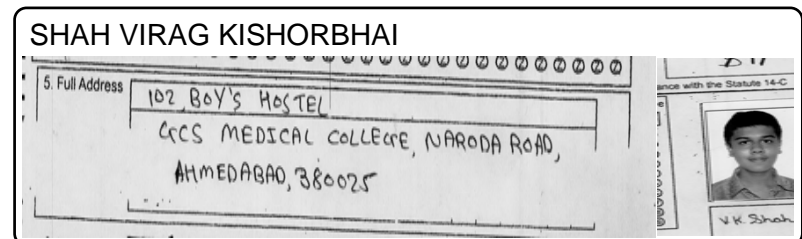 SHAH VIRAG KISHORBHAI
5. Full Address
102, BOY'S HOSTEL
GCS MEDICAL COLLEGE, NARODA ROAD,
AHMEDABAD, 380025
ance with the Statute 14-C
V.K. Shah